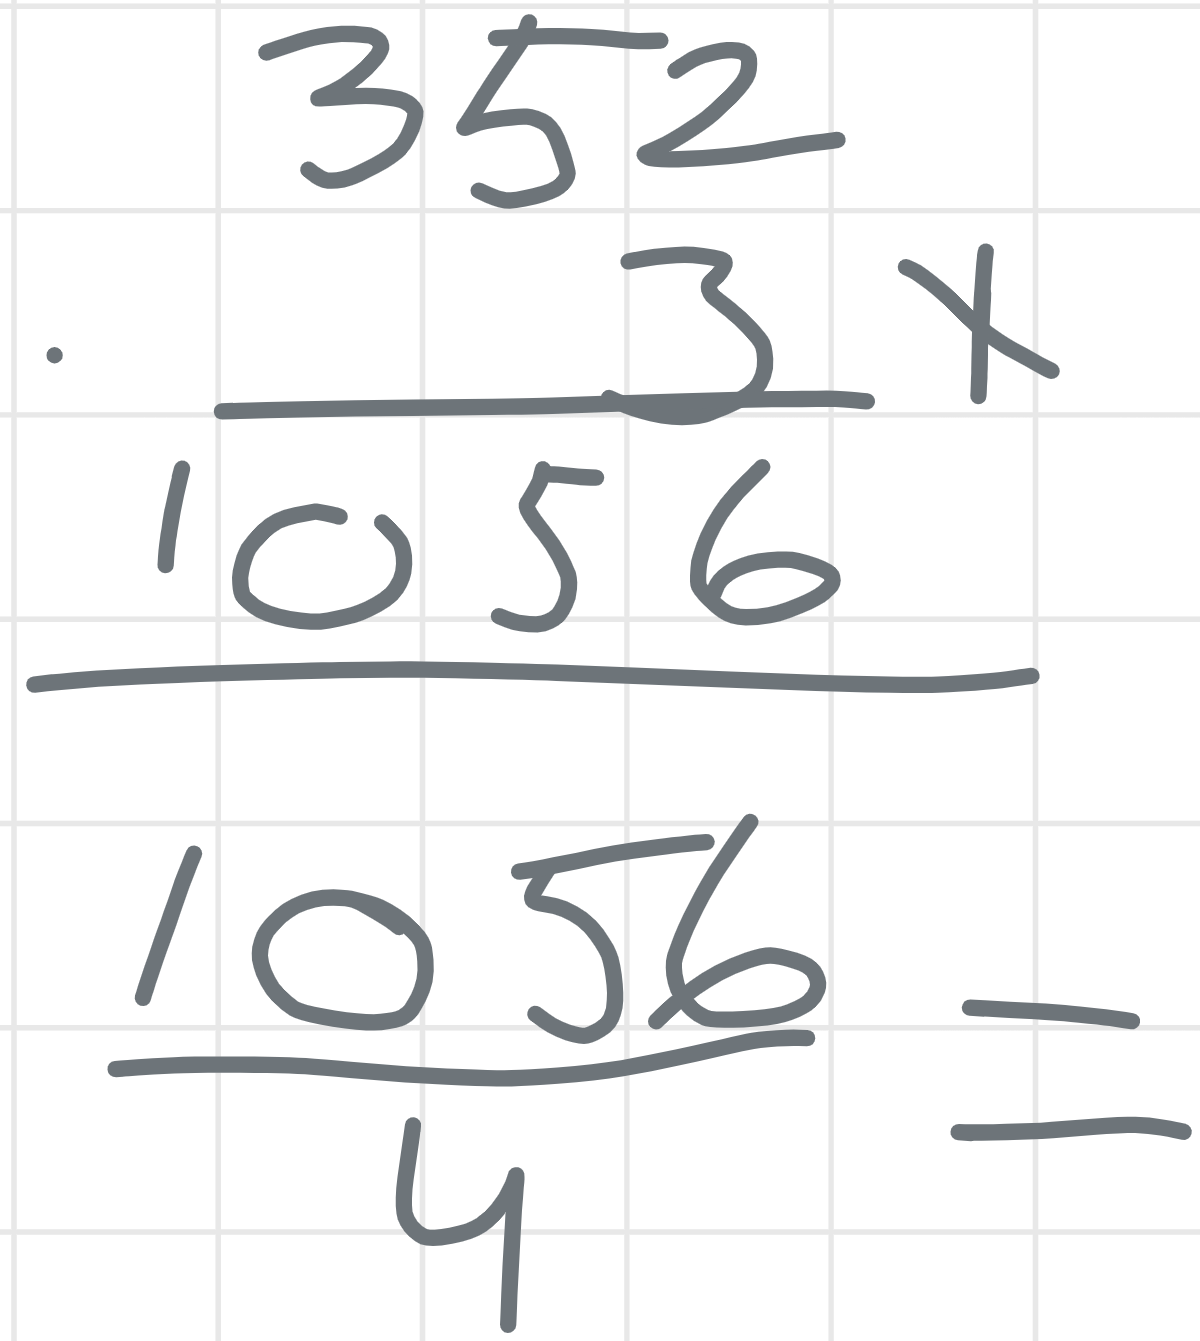 352
3 x
1056
1056
=
4